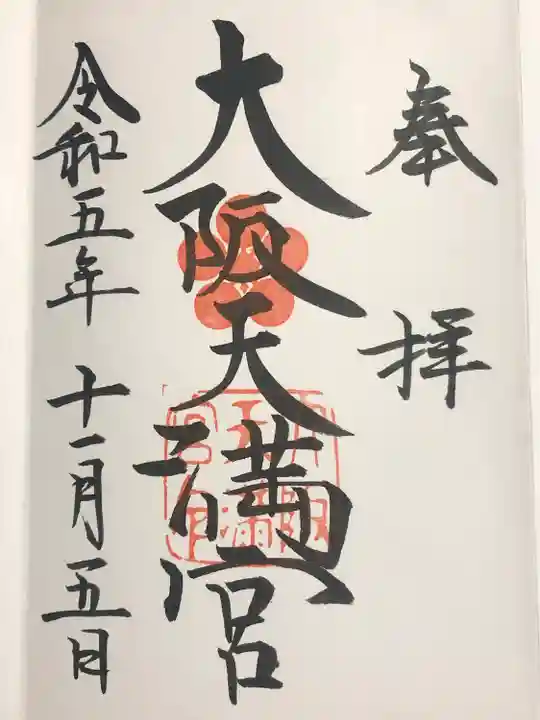 奉拝
大阪天満宮
令和五年十一月五日